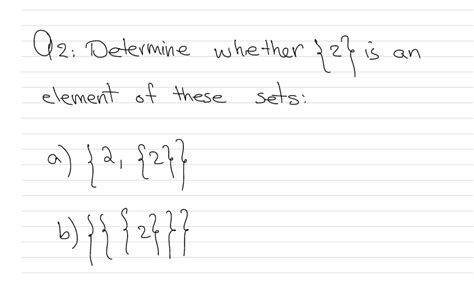 Q2: Determine whether {2} is an
element of these sets:
a) {2, {2}}
b) {{{2}}}